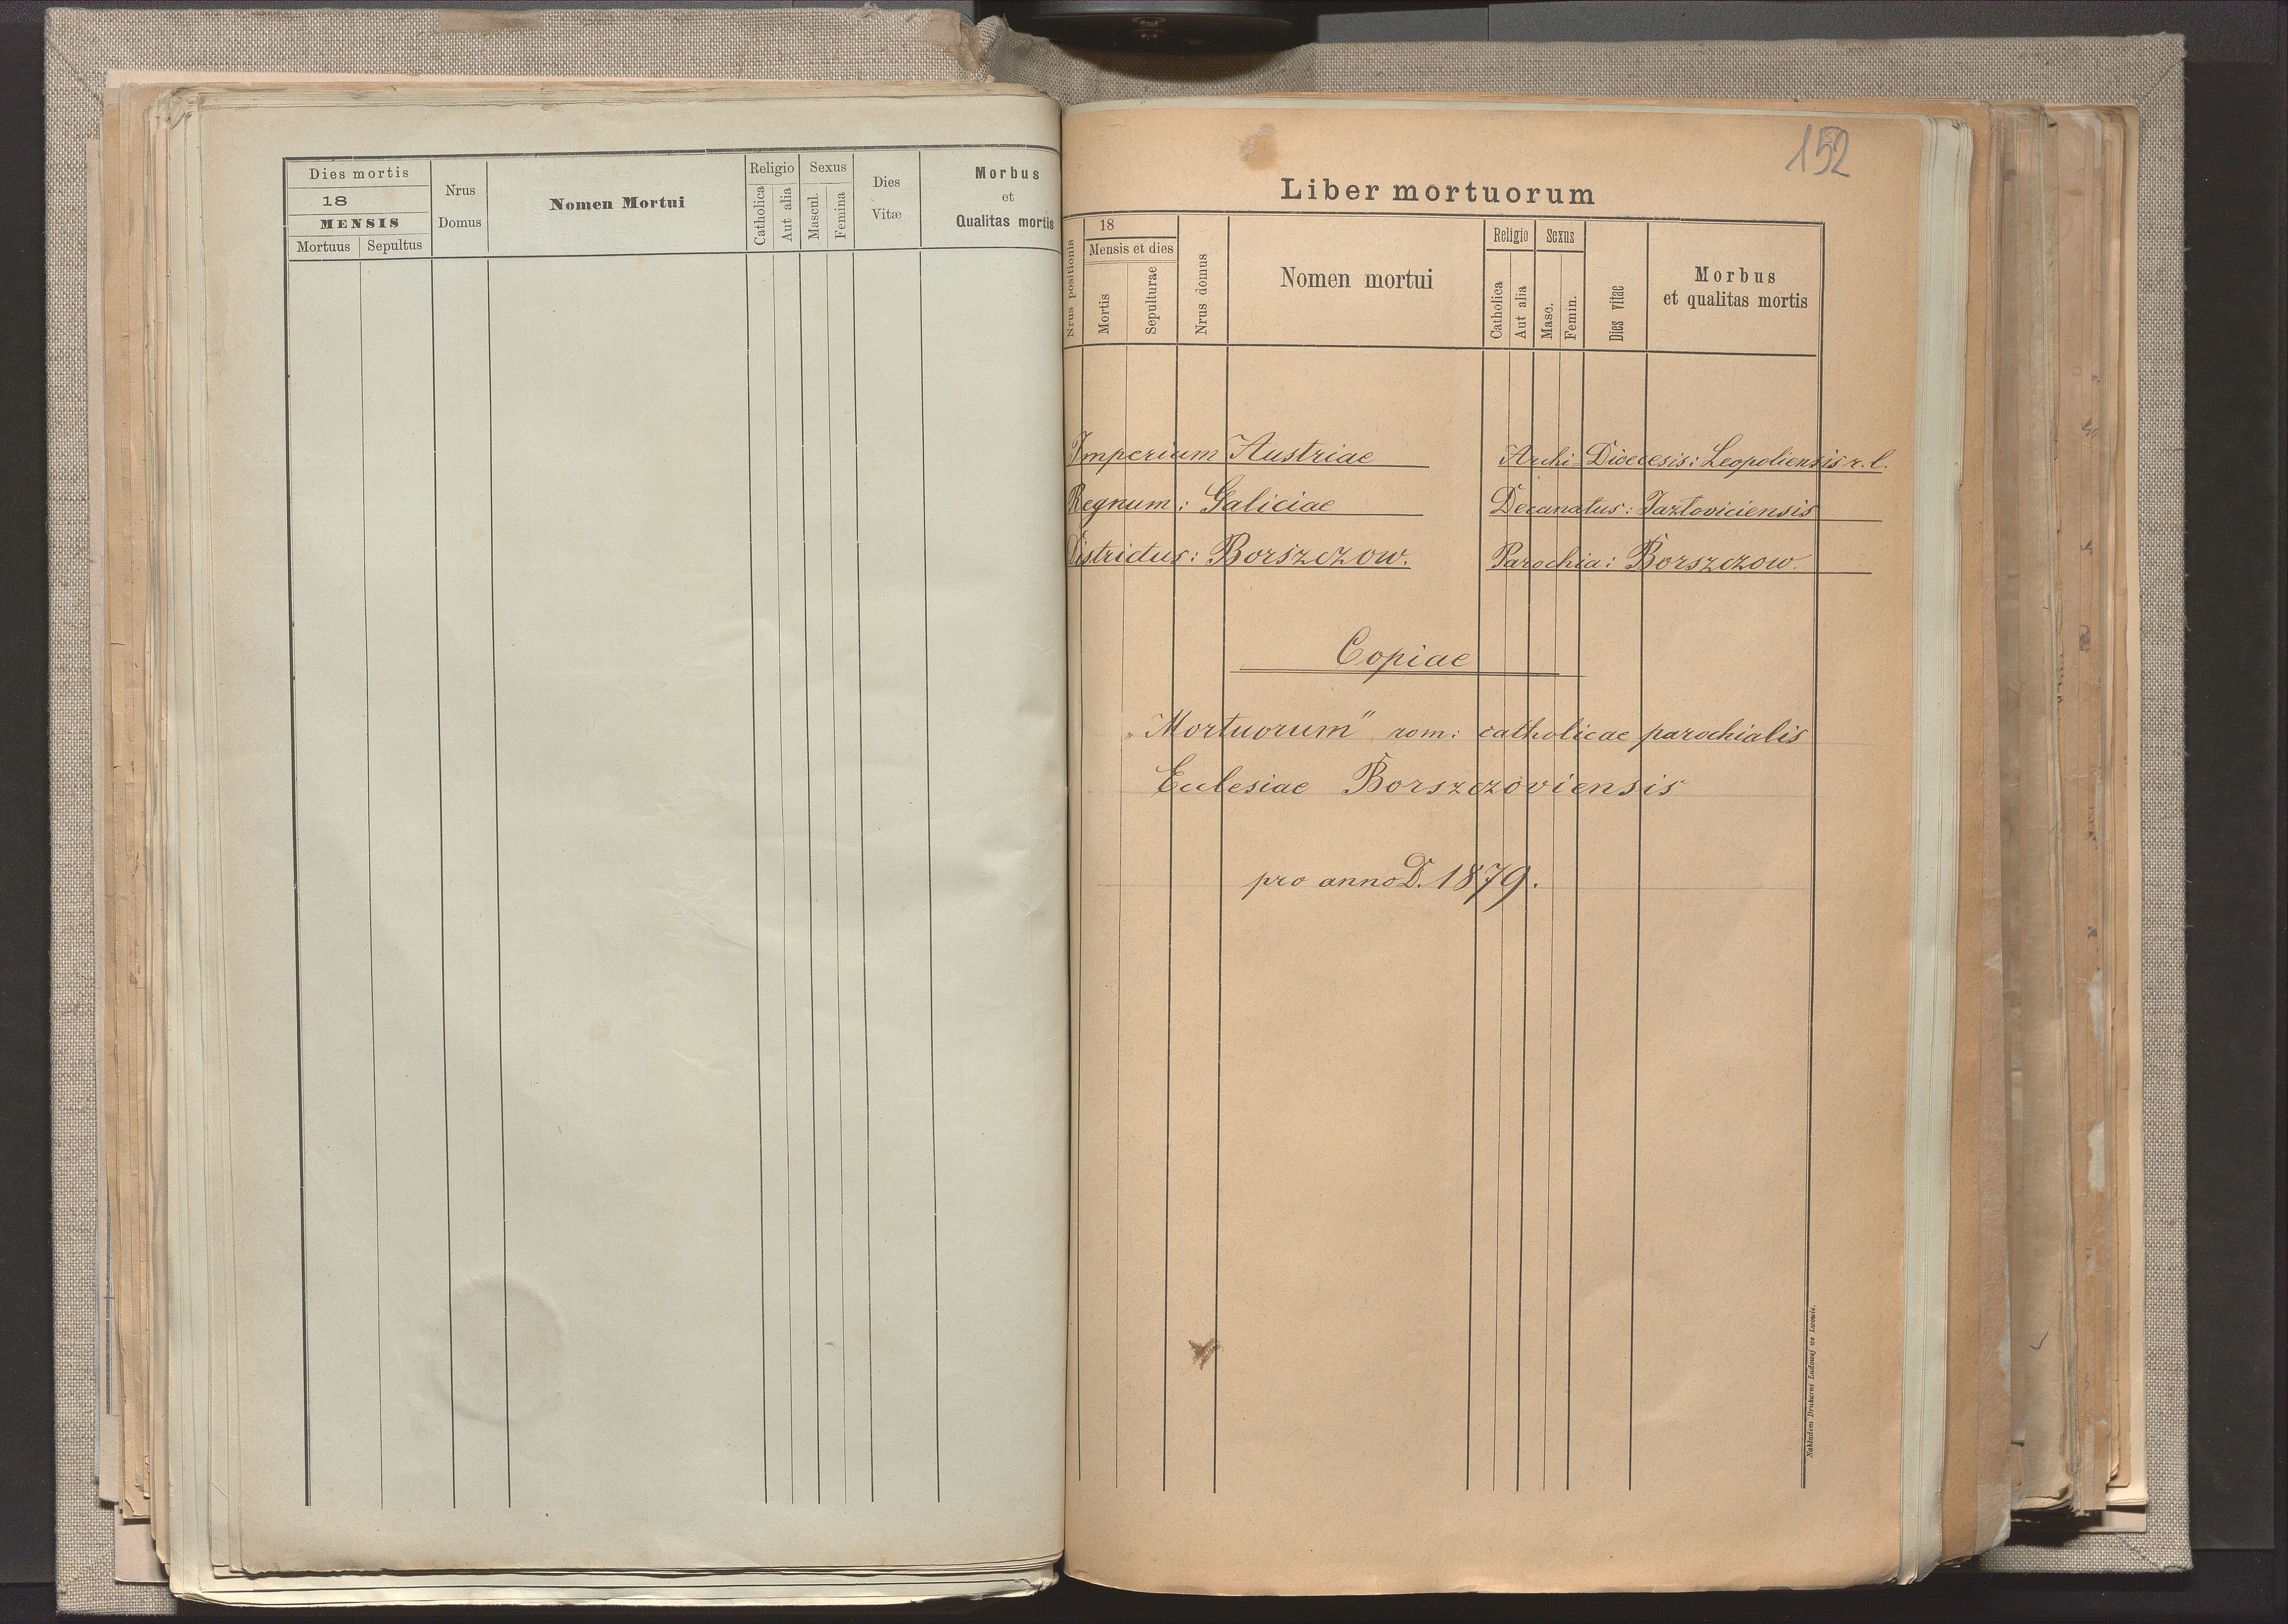 Dies mortis
18
MENSIS
Mortuus
Sepultus
Nrus
Domus
Nomen Mortui
Religio
Catholica
Aut alia
Sexus
Mascul.
Femina
Dies
Vitæ
Morbus
et
Qualitas mortis
152
Liber mortuorum
Nrus positionis
18
Mensis et dies
Mortis
Sepulturae
Nrus domus
Nomen mortui
Religio
Catholica
Aut alia
Sexus
Masc.
Femin.
Dies vitae
Morbus
et qualitas mortis
Imperium Austriae
Archi-Dioecesis: Leopoliensis r. l.
Regnum: Galiciae
Decanatus: Jazloviciensis
Districtus: Borszczow.
Parochia: Borszczow.
Copiae
„Mortuorum" rom: catholicae parochialis
Ecclesiae Borszczoviensis
pro anno D. 1879.
Nakładem Drukarni Ludowej we Lwowie.